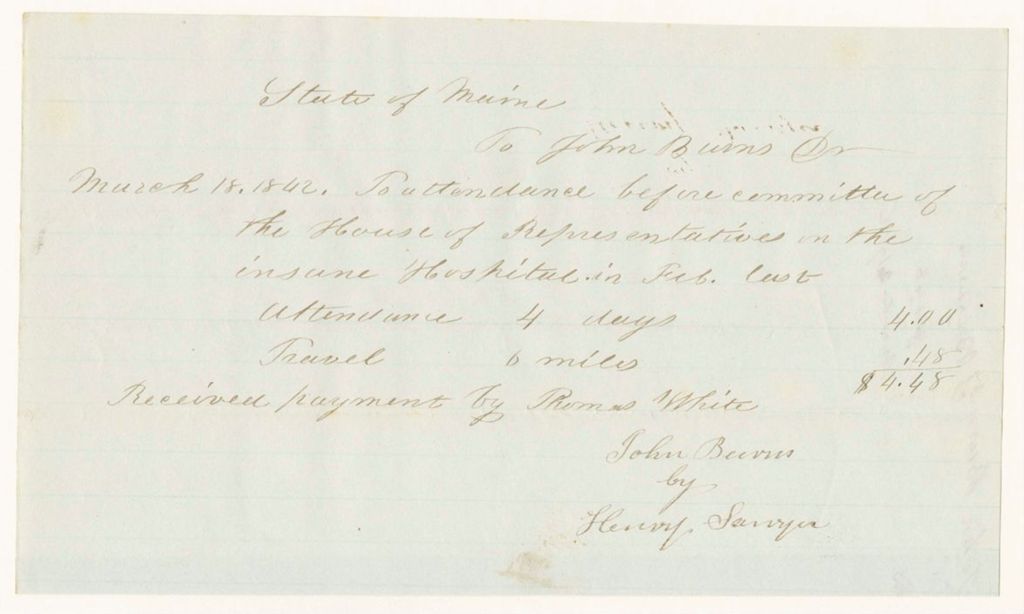 State of Maine
To John Burns Dr
March 18. 1842. To attendance before committee of
the House of Representatives on the
insane Hospital in Feb. last
Attendance 4 days 4.00
Travel 6 miles .48
$4.48
Received payment by Thomas White
John Burns
by
Henry Sawyer